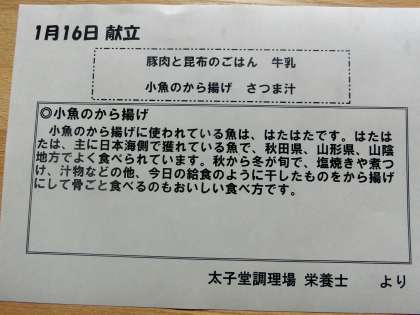 1月16日 献立
豚肉と昆布のごはん　牛乳
小魚のから揚げ　さつま汁
◎小魚のから揚げ
　小魚のから揚げに使われている魚は、はたはたです。はたは
たは、主に日本海側で獲れている魚で、秋田県、山形県、山陰
地方でよく食べられています。秋から冬が旬で、塩焼きや煮つ
け、汁物などの他、今日の給食のように干したものをから揚げ
にして骨ごと食べるのもおいしい食べ方です。
太子堂調理場 栄養士　　より